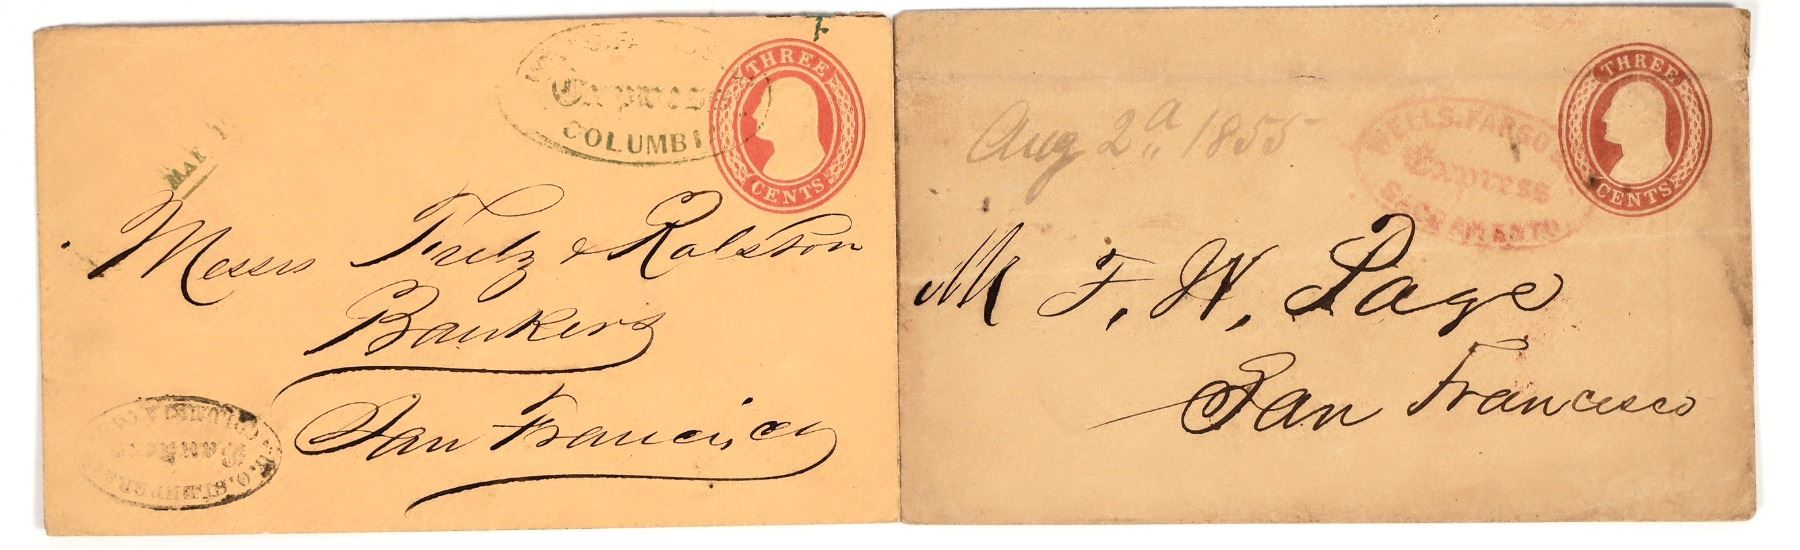 Express
COLUMBI
THREE
CENTS
MAR 1
Messrs Fretz & Ralston
Bankers
San Francisco
Aug 2d 1855
WELLS.FARGO
Express
SACRAMANTO
THREE
CENTS
M F. W. Page
San Francisco